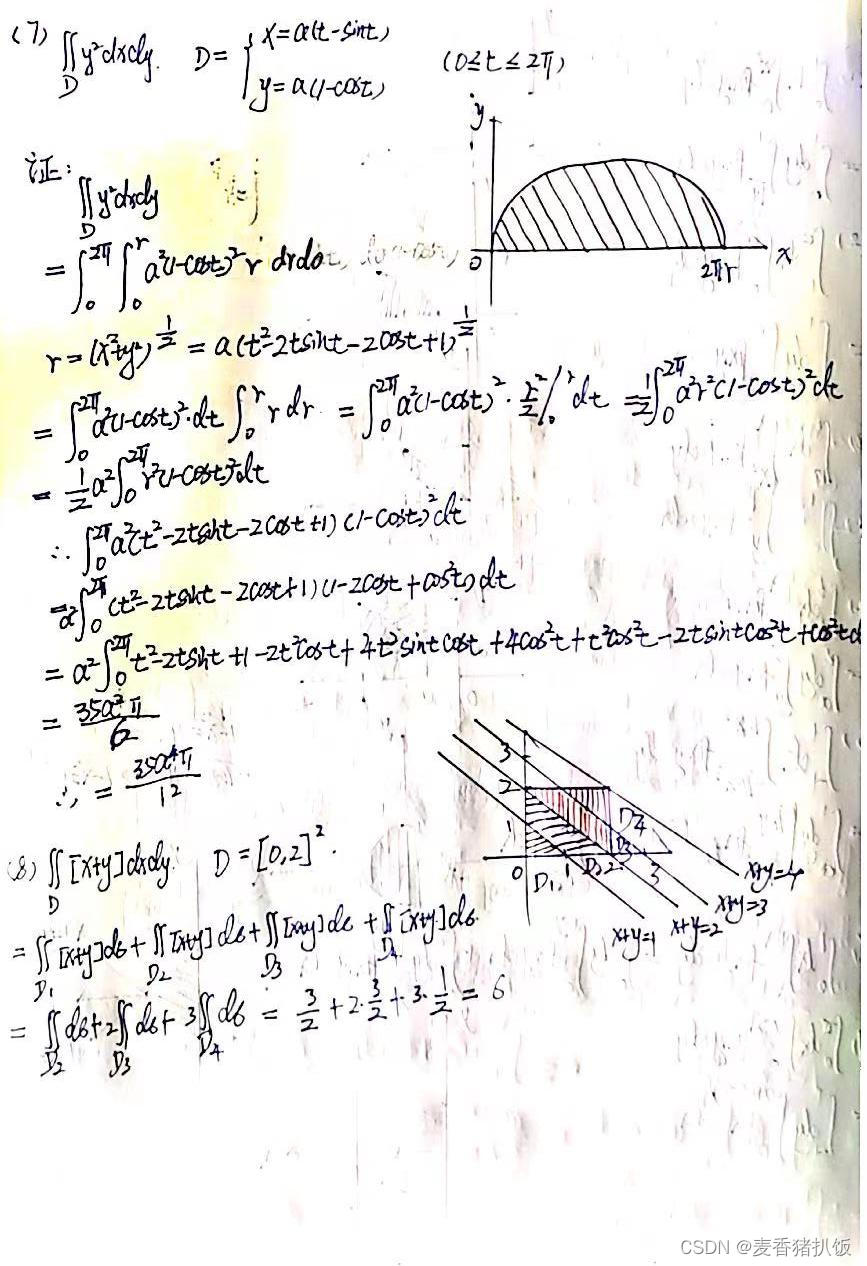 (7) ∬_D y²dxdy. D= { x=a(t-sint) y=a(1-cost) (0≤t≤2π)
y
证:
∬_D y²dxdy
= ∫_0^{2π} ∫_0^r a²(1-cost)² r drdθ
0 2πr x
r=(x²+y²)^{1/2} = a(t²-2tsint-2cost+1)^{1/2}
= ∫_0^{2π} a²(1-cost)²·dt ∫_0^r r dr = ∫_0^{2π} a²(1-cost)²·r²/2 |_0^r dt = 1/2 ∫_0^{2π} a²r²(1-cost)²dt
= 1/2 a² ∫_0^{2π} r²(1-cost)²dt
∴ ∫_0^{2π} a²(t²-2tsint-2cost+1)(1-cost)²dt
=a² ∫_0^{2π} (t²-2tsint-2cost+1)(1-2cost+cos²t)dt
= a² ∫_0^{2π} t²-2tsint+1-2t²cost+4t²sintcost+4cos²t+t²cos²t-2tsintcos²t+cos²t d
= 35a²π/6
∴ = 35a⁴π/12
3
2
1
D4
D3
0 D1 1 D2 2 3
x+y=4
x+y=3
x+y=2
x+y=1
(8) ∬_D [x+y]dxdy. D=[0,2]².
= ∬_{D1} [x+y]dσ+∬_{D2} [x+y]dσ+∬_{D3} [x+y]dσ+∬_{D4} [x+y]dσ.
= ∬_{D2} dσ+2∬_{D3} dσ+3∬_{D4} dσ = 3/2+2·3/2+3·1/2 = 6
CSDN @麦香猪扒饭